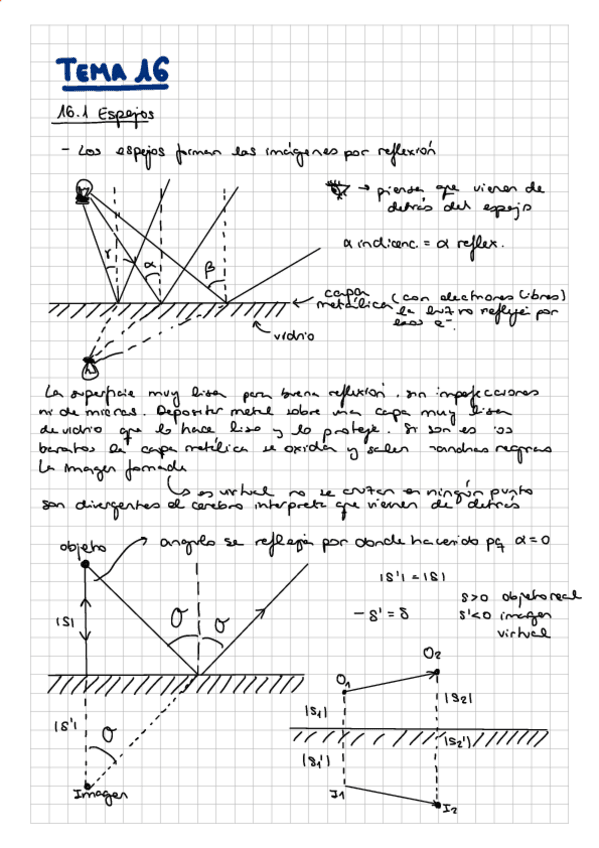 TEMA 16
16.1 Espejos
- Los espejos forman las imágenes por reflexión
→ piensa que vienen de
detrás del espejo
α indicenc. = α reflex.
γ α β
capa metálica (con electrones libres)
la luz no refleja por
esos e⁻.
vidrio
La superficie muy lisa para buena reflexión. sin imperfecciones
ni de micras. Depositar metal sobre una capa muy lisa
de vidrio que lo hace liso y lo protege. Si son es
baratos la capa metálica se oxida y salen manchas negras
La imagen formada
↳ es virtual no se cruzan en ningún punto
son divergentes el cerebro interpreta que vienen de detrás
objeto
→ angulo se refleja por donde ha venido pq α=0
|S'| = |S|
-s' = s
s>0 objeto real
s'<0 imagen
virtual
|S|
θ θ
|S'|
θ
Imagen
O1 O2
|S1| |S2|
|S1'| |S2'|
I1 I2